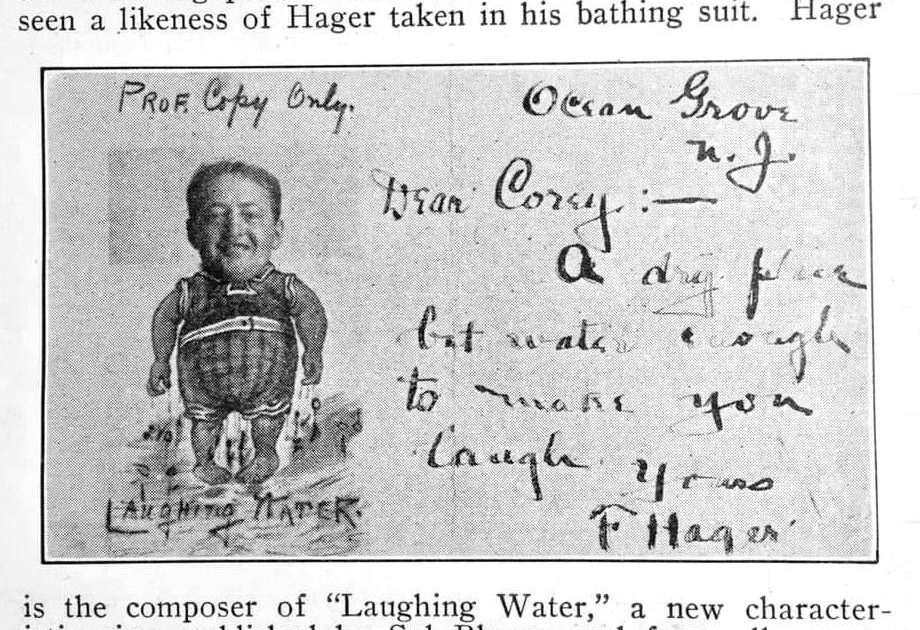 seen a likeness of Hager taken in his bathing suit. Hager
Prof. Copy Only.
Ocean Grove
N. J.
Dear Corey :—
A dry place
but water enough
to make you
laugh.
Yours
F Hager
Laughing Water.
is the composer of “Laughing Water,” a new character-